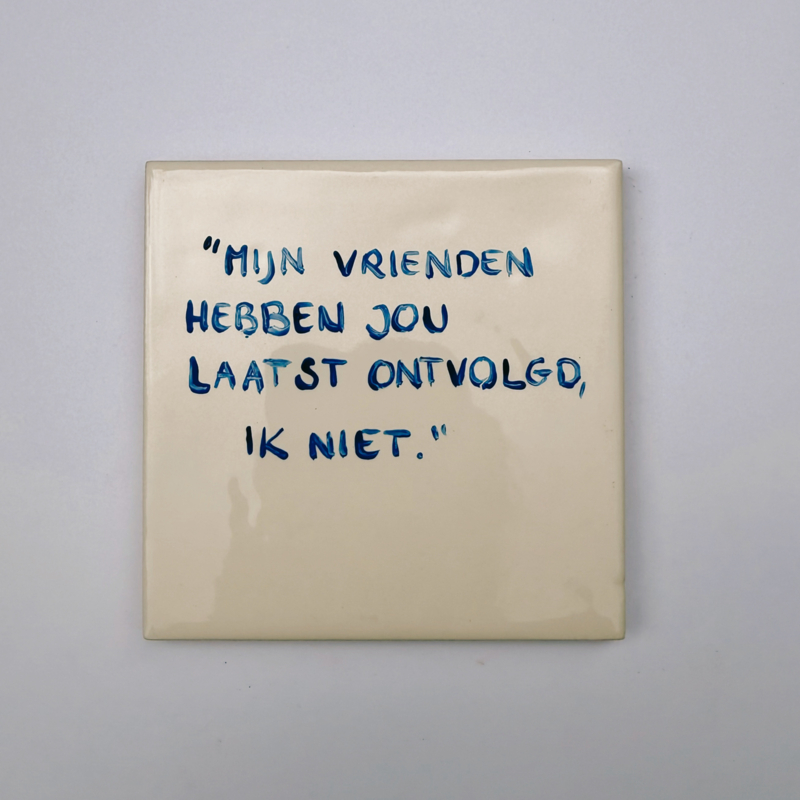 "MIJN VRIENDEN
HEBBEN JOU
LAATST ONTVOLGD,
IK NIET."